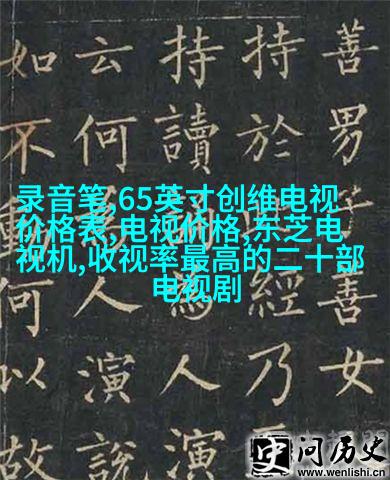 善男子善女
持於經乃
持讀人演
云何人演說
如不動何以故
录音笔,65英寸创维电视
价格表,电视价格,东芝电
视机,收视率最高的二十部
电视剧
史问历史
www.wenlishi.cn